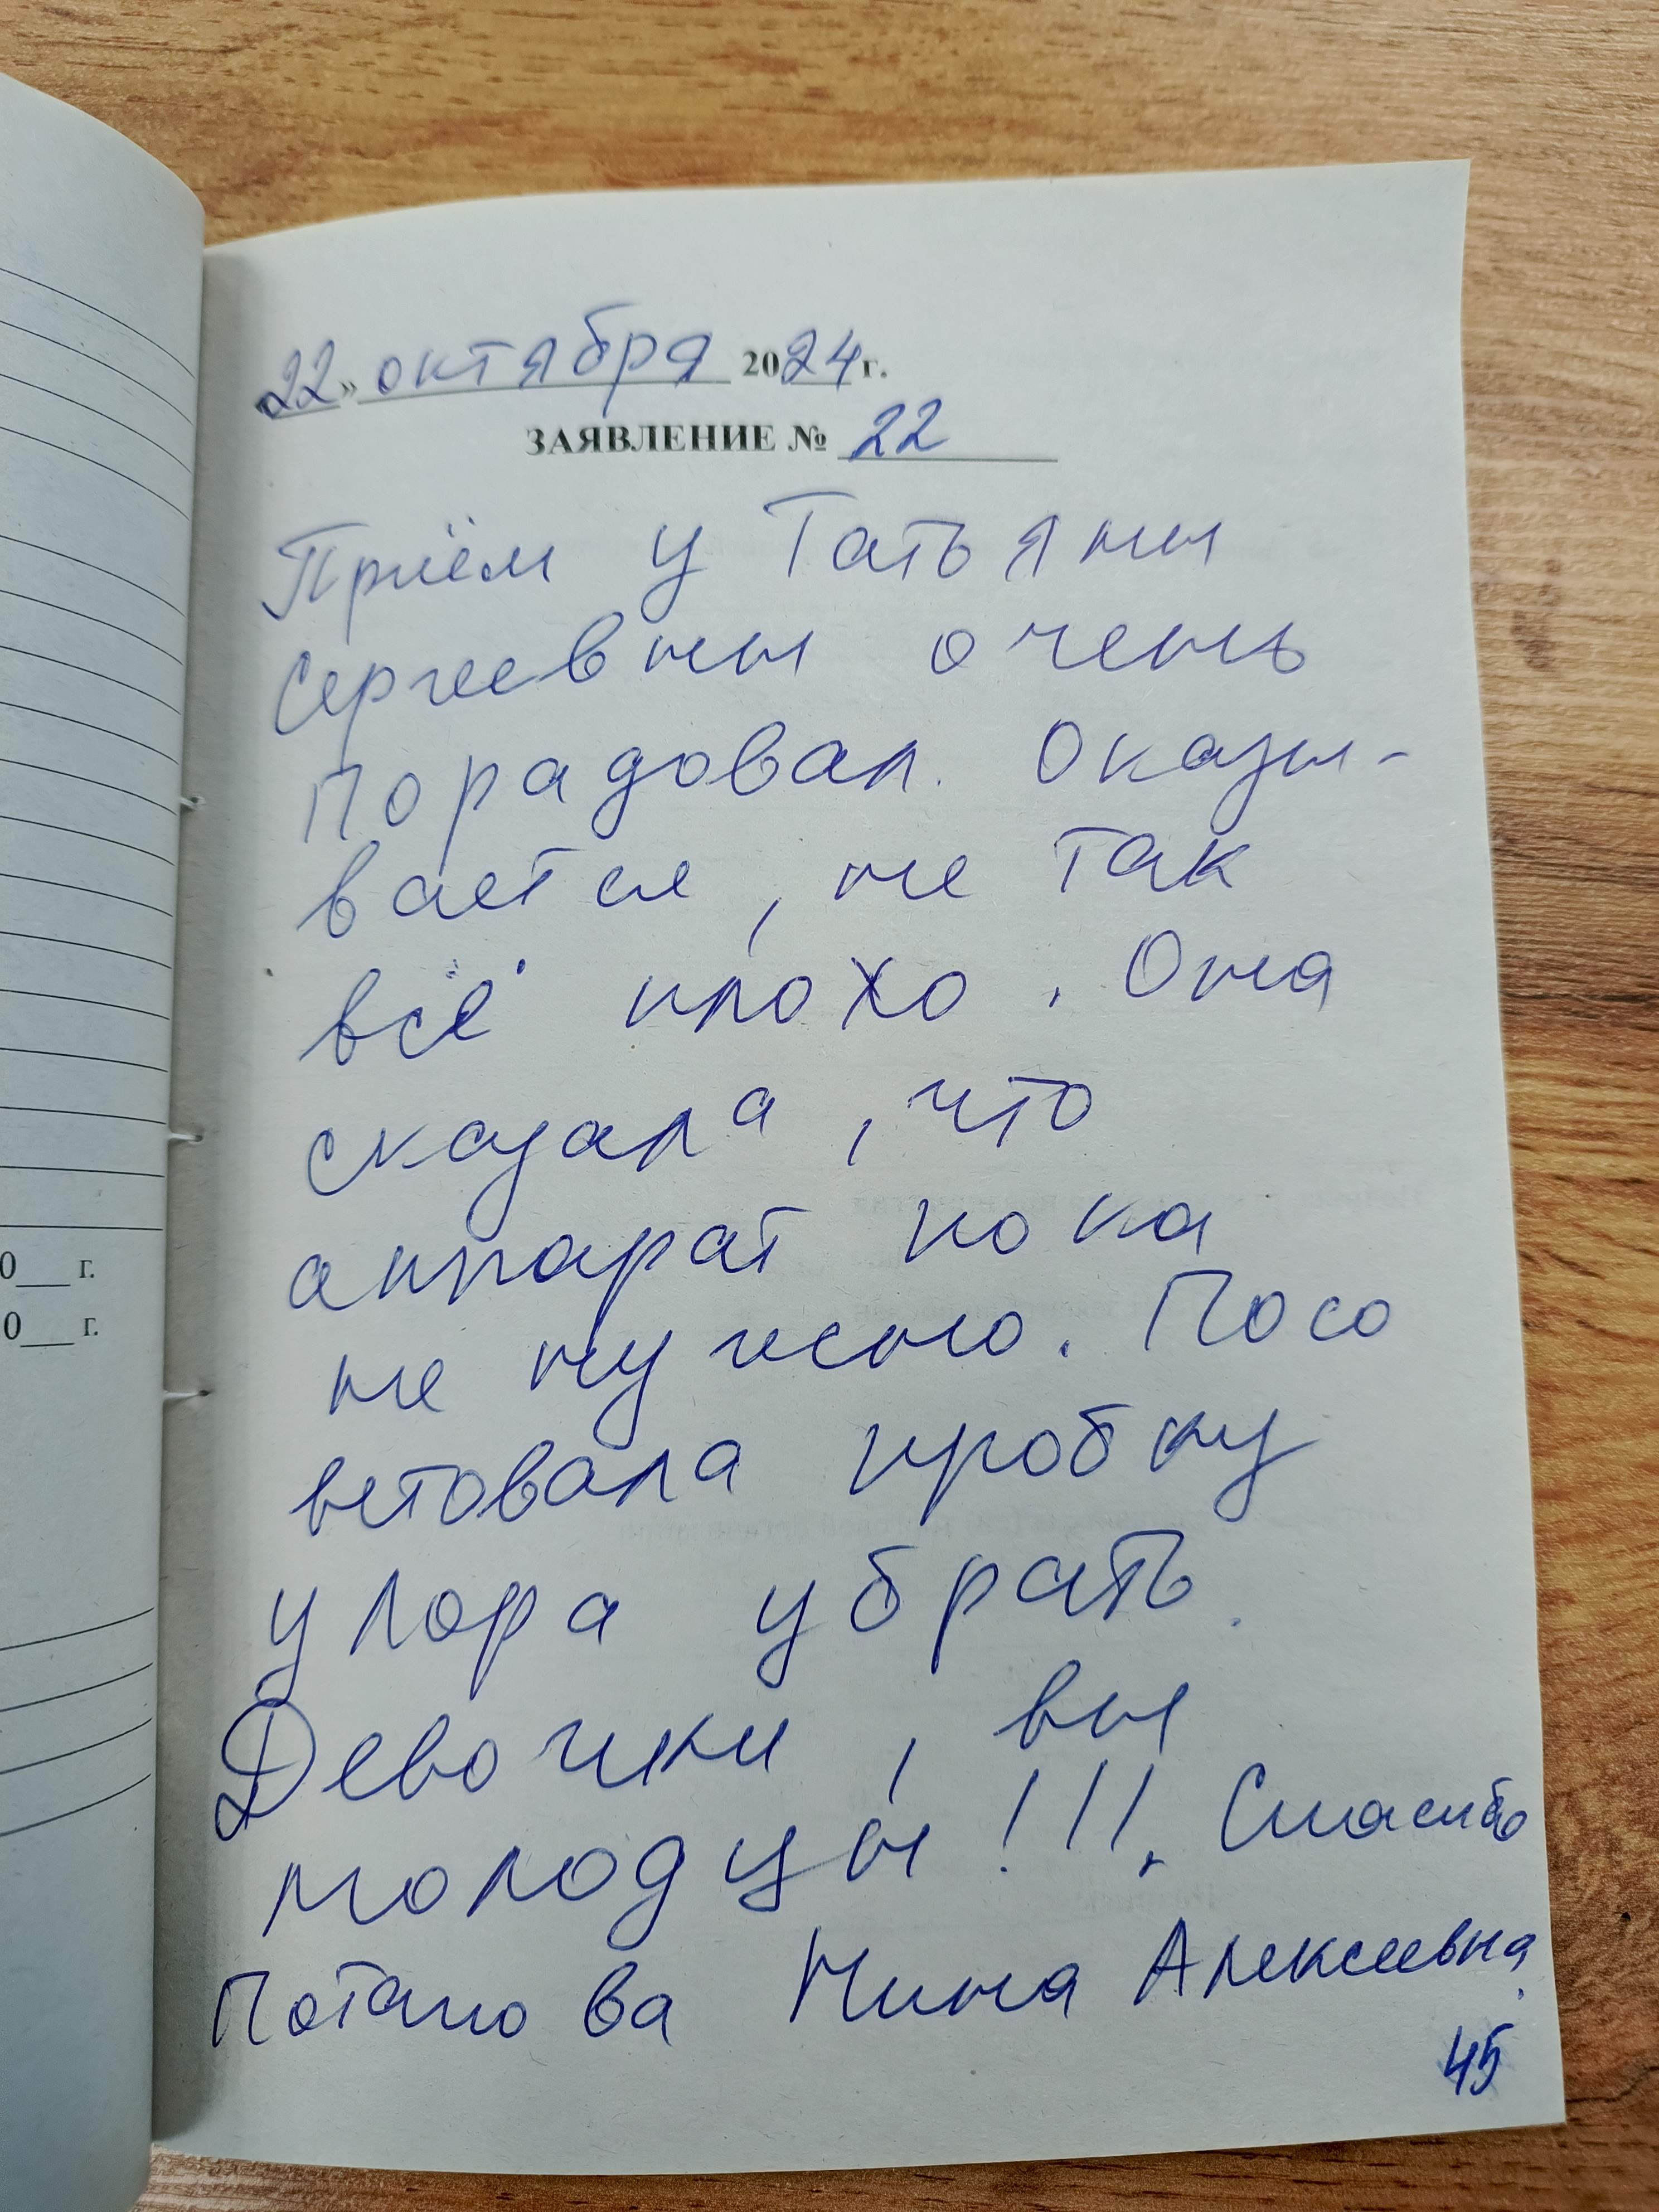 22» октября 2024 г.
ЗАЯВЛЕНИЕ № 22
Приём у Татьяны
Сергеевны очень
порадовал. Оказы-
вается, не так
всё плохо. Она
сказала, что
аппарат пока
не нужно. Посо
ветовала пробку
у лора убрать.
Девочки, вы
молодцы!!!. Спасибо
Потапова Нина Алексеевна.
45
0___ г.
0___ г.